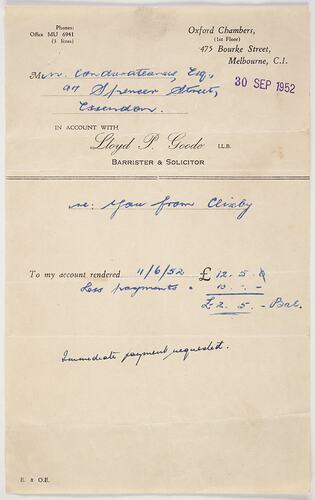 Phones:
Office MU 6941
(3 lines)
Oxford Chambers,
(1st Floor)
475 Bourke Street,
Melbourne, C.I.
30 SEP 1952
Mr. Condurateanu, Esq.,
97 Spencer Street,
Essendon.
IN ACCOUNT WITH
Lloyd P. Goode LL.B.
BARRISTER & SOLICITOR
re: You from Clixby
To my account rendered 11/6/52 £ 12. 5. 0
Less payments " 10. -. -
£ 2. 5. - Bal.
Immediate payment requested.
E. & O.E.